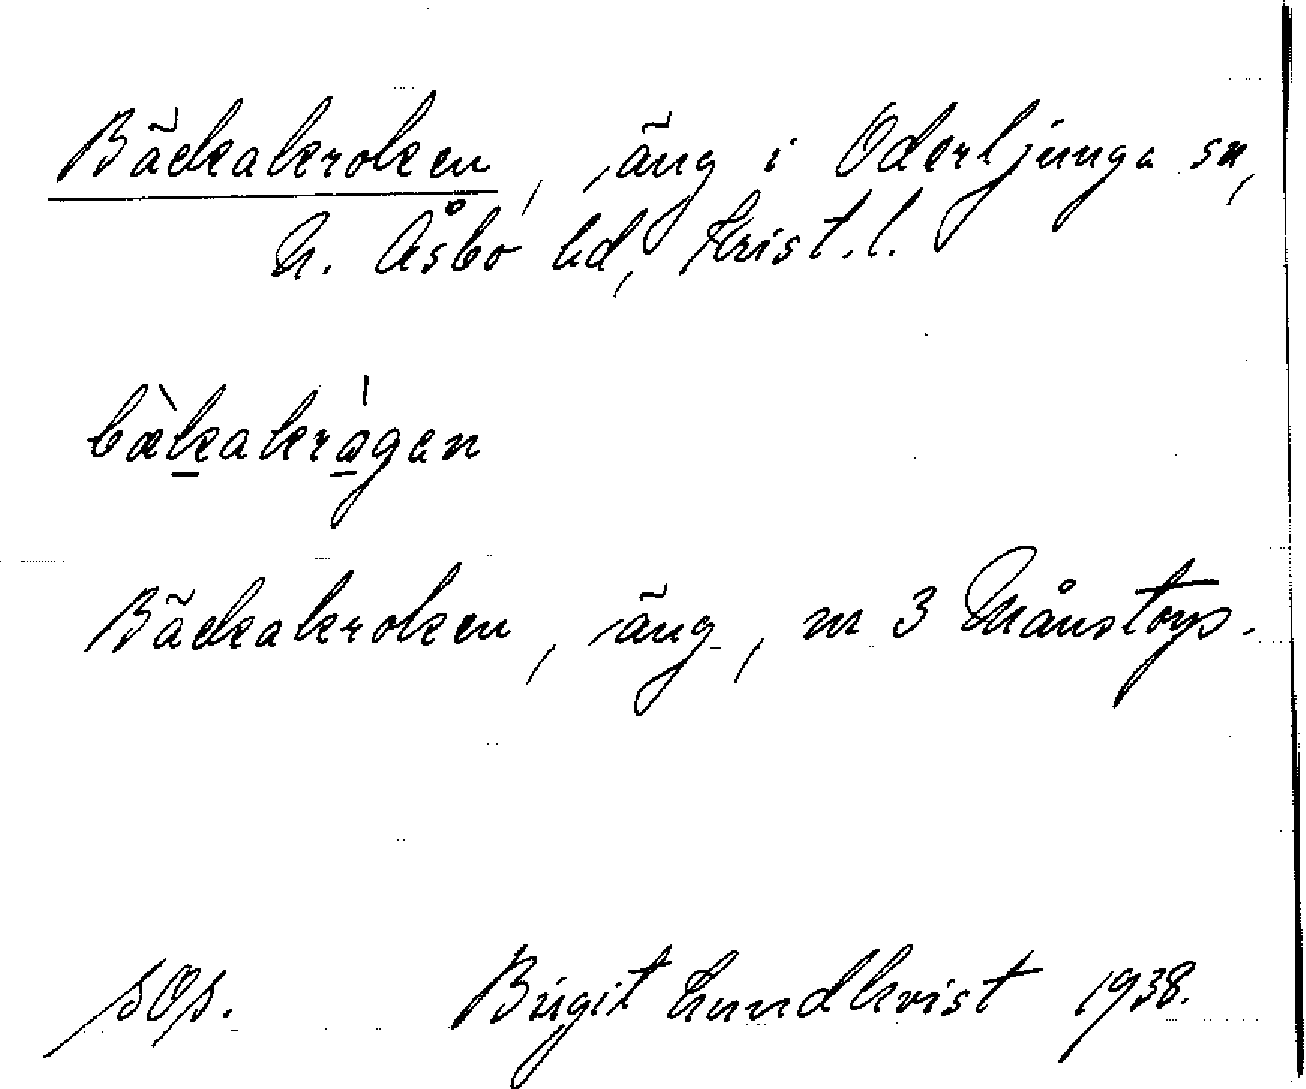 Bäckakroken, äng i Oderljunga sn,
N. Åsbo hd, Krist. l.
bæ̀kakrågen
Bäckakroken, äng, nr 3 Månstorp.
sOp. Birgit Lundkvist 1938.